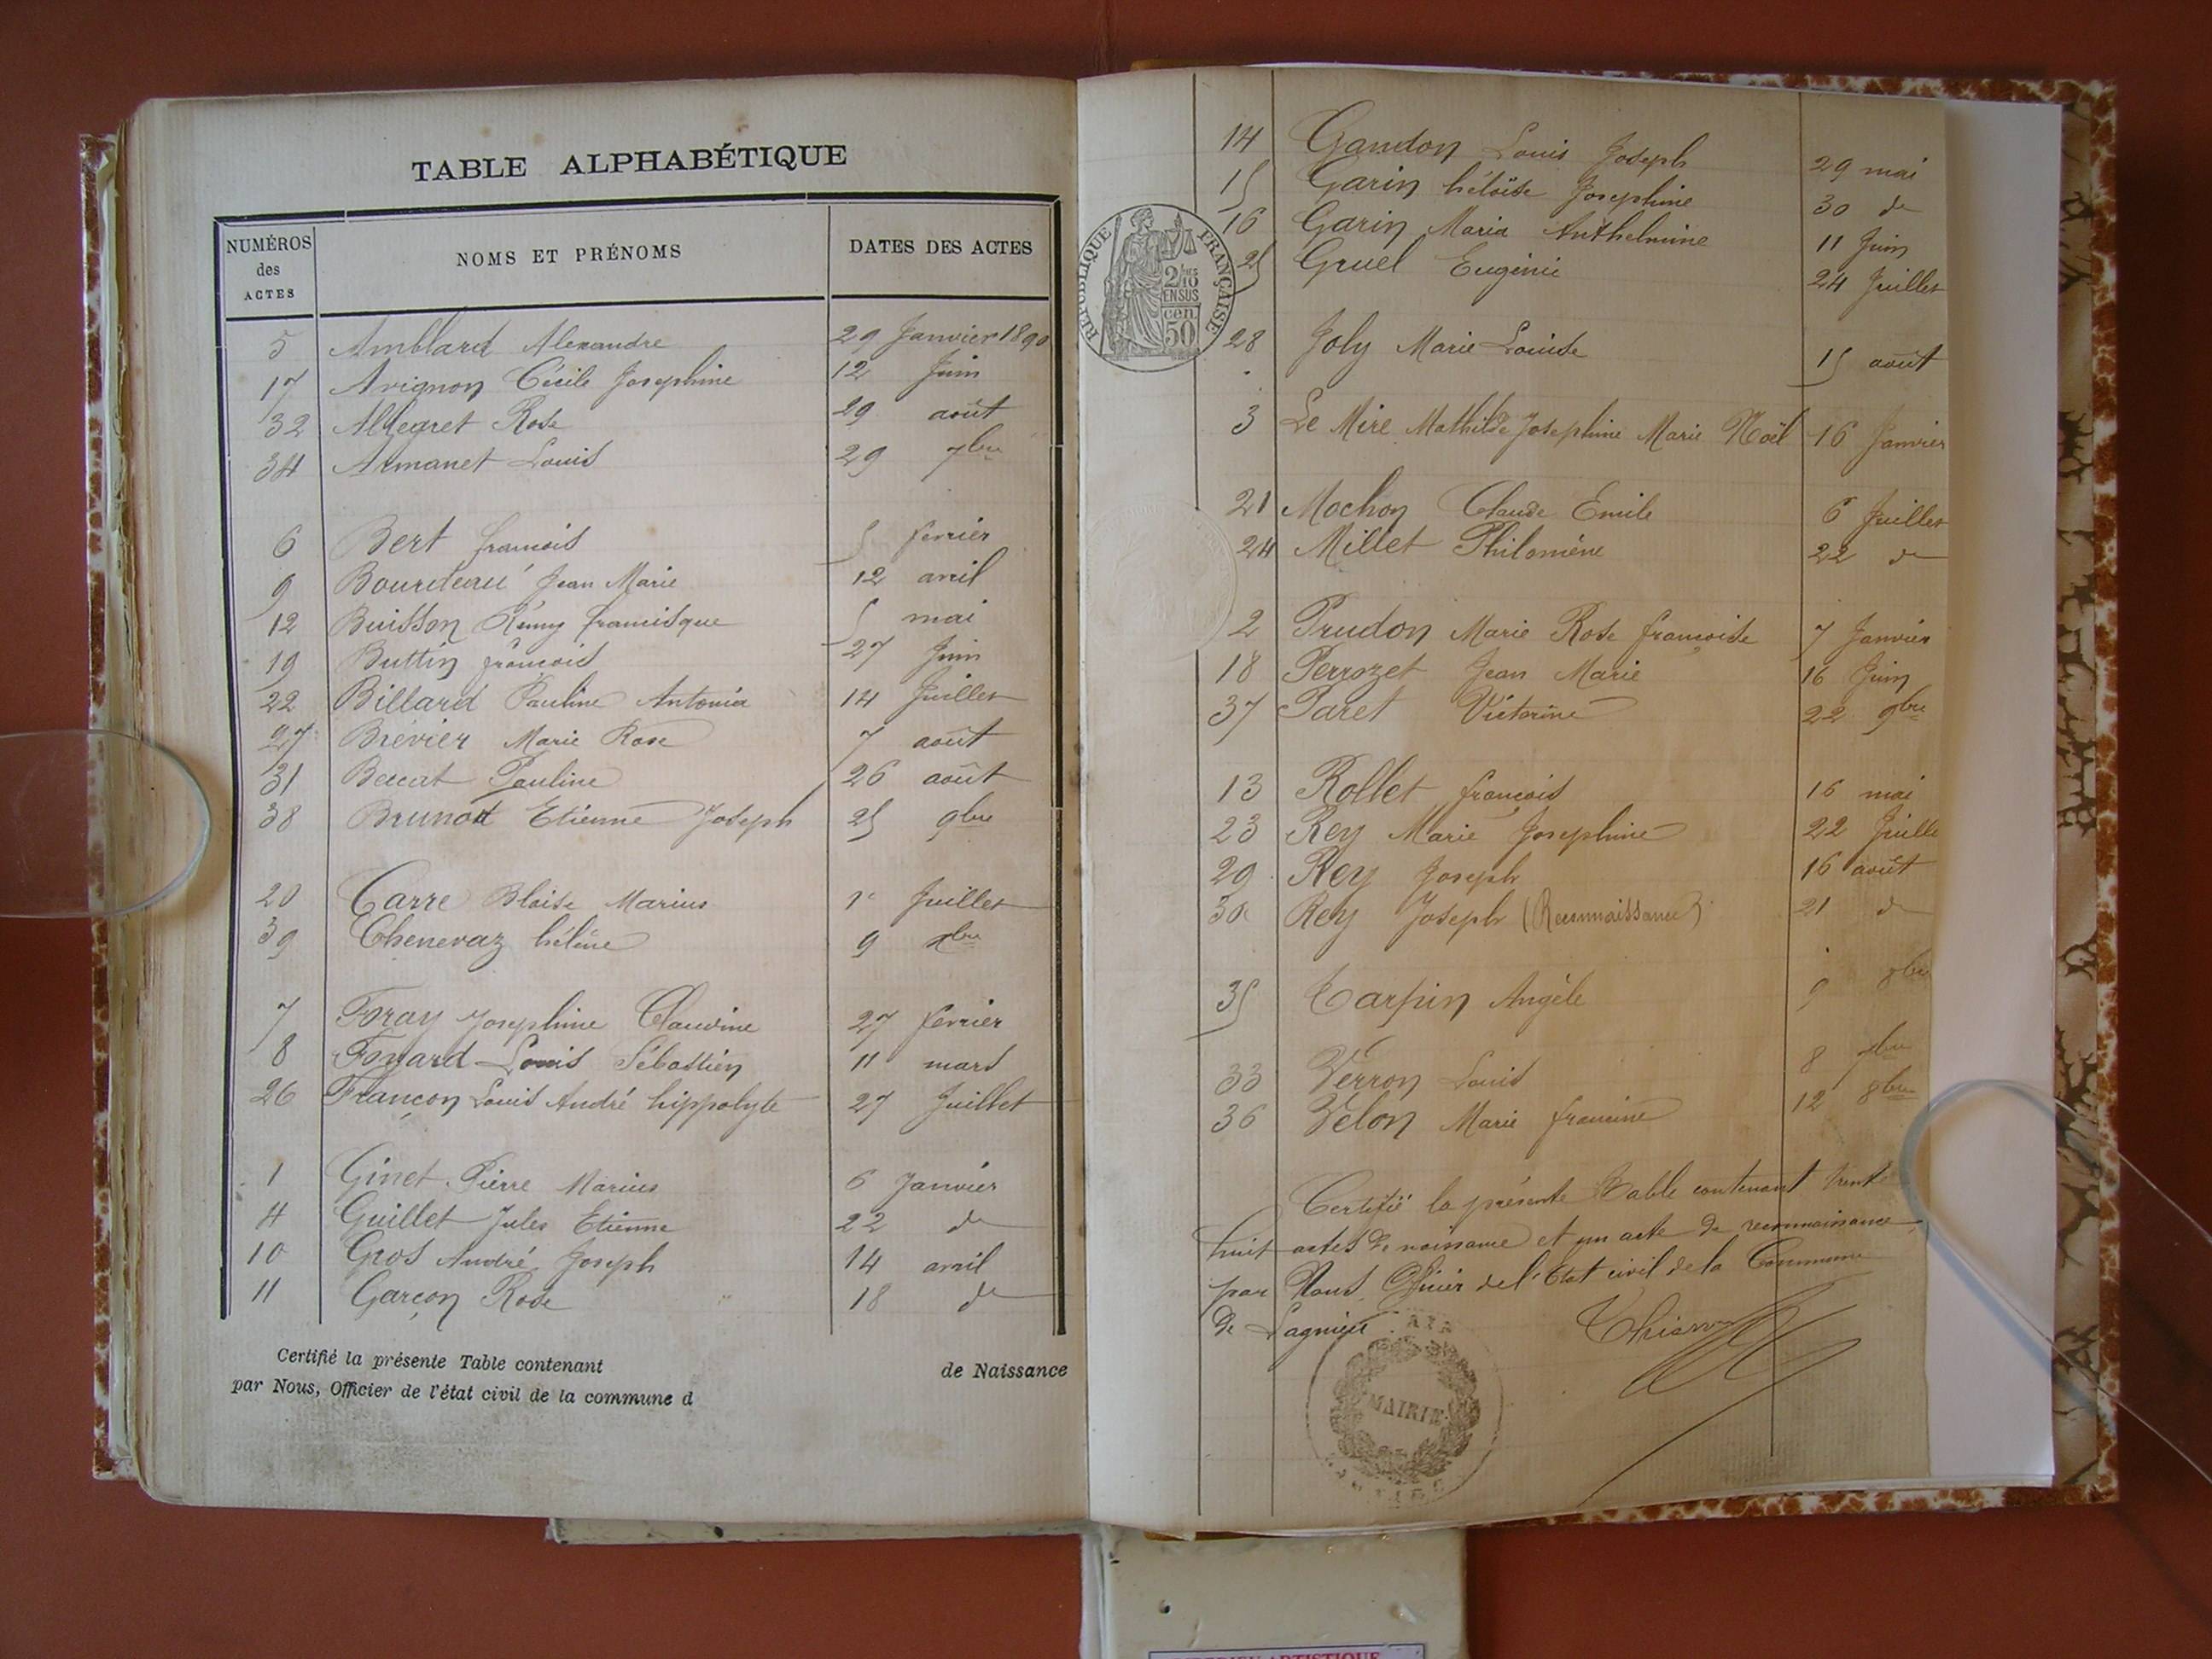 TABLE ALPHABÉTIQUE
NUMÉROS des ACTES NOMS ET PRÉNOMS DATES DES ACTES
5 Amblard Alexandre 29 Janvier 1890
17 Avignon Cécile Josephine 12 Juin
32 Allegret Rose 29 août
34 Armanet Louis 29 7bre
6 Bert francois 5 fevrier
9 Bourdeau Jean Marie 12 avril
12 Buisson Rémy francisque 5 mai
19 Buttin francois 27 Juin
22 Billard Pauline Antonia 14 Juillet
27 Brévier Marie Rose 7 août
31 Beccat Pauline 26 août
38 Brunot Etienne Joseph 25 9bre
20 Carre Blaise Marius 1er Juillet
39 Chenevaz hélène 9 xbre
7 Foray Josephine Claudine 27 fevrier
8 Fonard Louis Sébastien 11 mars
26 Françon Louis André hippolyte 27 Juillet
1 Ginet Pierre Marius 6 Janvier
4 Guillet Jules Etienne 22 do
10 Gros André Joseph 14 avril
11 Garçon Rose 18 do
Certifié la présente Table contenant de Naissance
par Nous, Officier de l'état civil de la commune d
14 Gandon Louis Joseph 29 mai
15 Garin héloïse Josephine 30 do
16 Garin Maria Anthelmine 11 Juin
25 Gruel Eugénie 24 Juillet
RÉPUBLIQUE FRANÇAISE
2/10 EN SUS
cen. 50
28 Joly Marie Louise 15 août
3 Le Mire Mathilde Josephine Marie Noël 16 Janvier
21 Mochon Claude Emile 6 Juillet
24 Millet Philomène 22 do
2 Prudon Marie Rose françoise 7 Janvier
18 Perrozet Jean Marie 16 Juin
37 Paret Victorine 22 9bre
13 Rollet françois 16 mai
23 Rey Marie Josephine 22 Juille
29 Rey Joseph 16 août
30 Rey Joseph (Reconnaissance) 21 do
35 Tarpin Angèle 9 8bre
33 Verron Louis 8 7bre
36 Velon Marie francine 12 8bre
Certifié la présente Table contenant trente
huit actes de naissance et un acte de reconnaissance
par Nous Officier de l'Etat civil de la Commune
de Lagnieu
MAIRIE
AIN